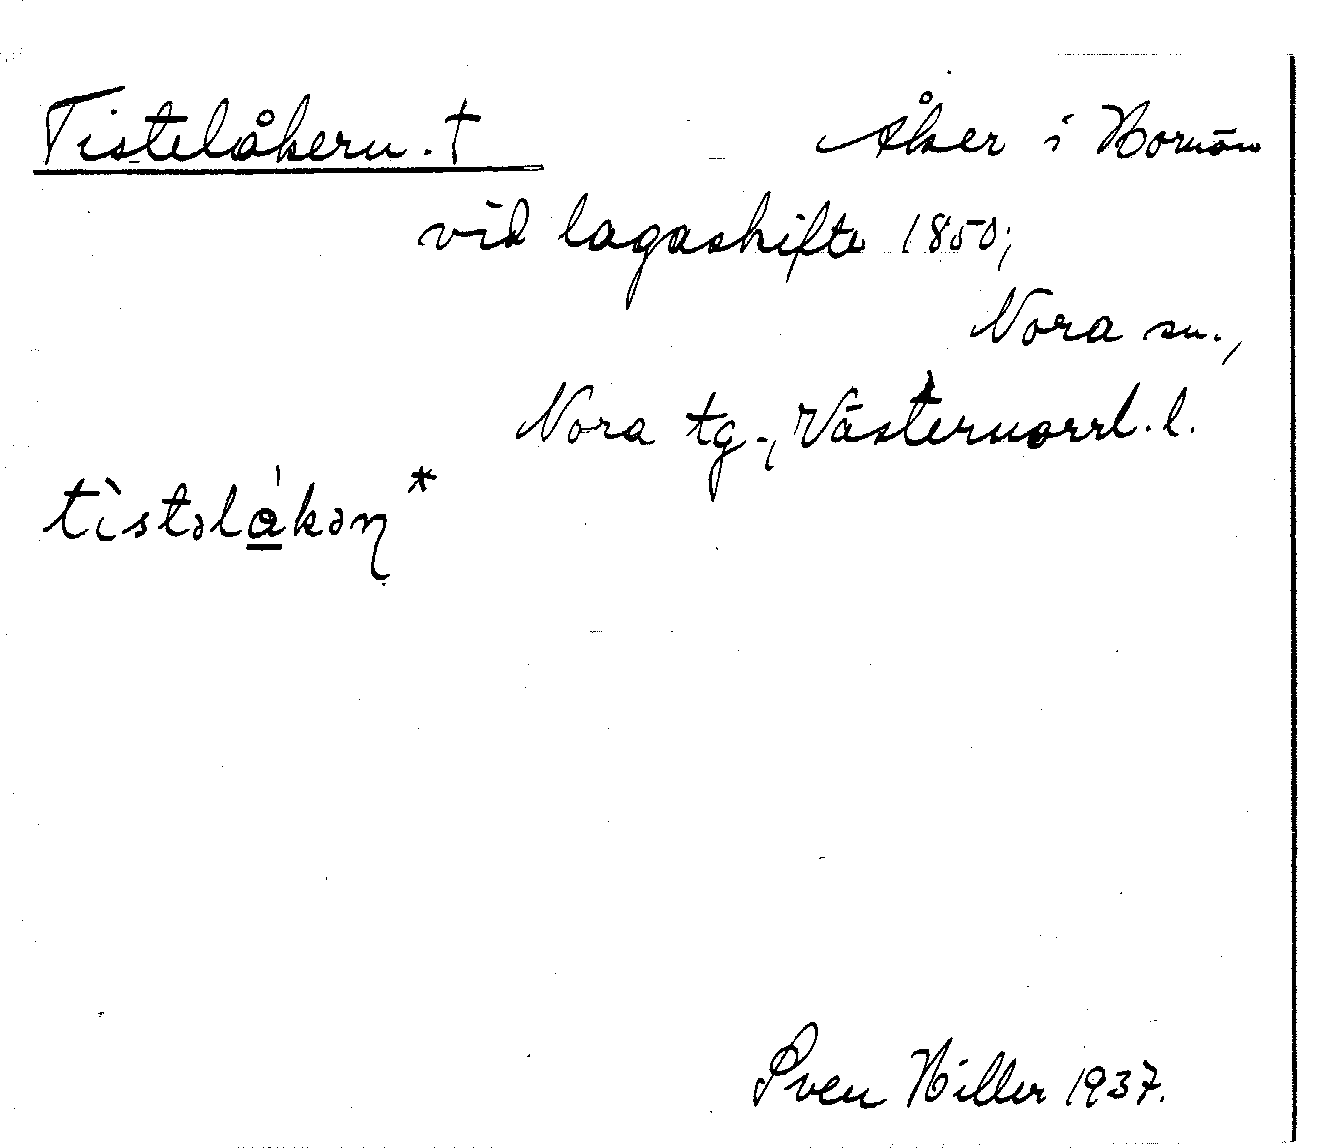 Tistelåkern. †
Åker i Hornön
vid lagaskifte 1850;
Nora sn.,
Nora tg., Västernorrl. l.
tìstəlákəɳ*
Sven Hiller 1937.